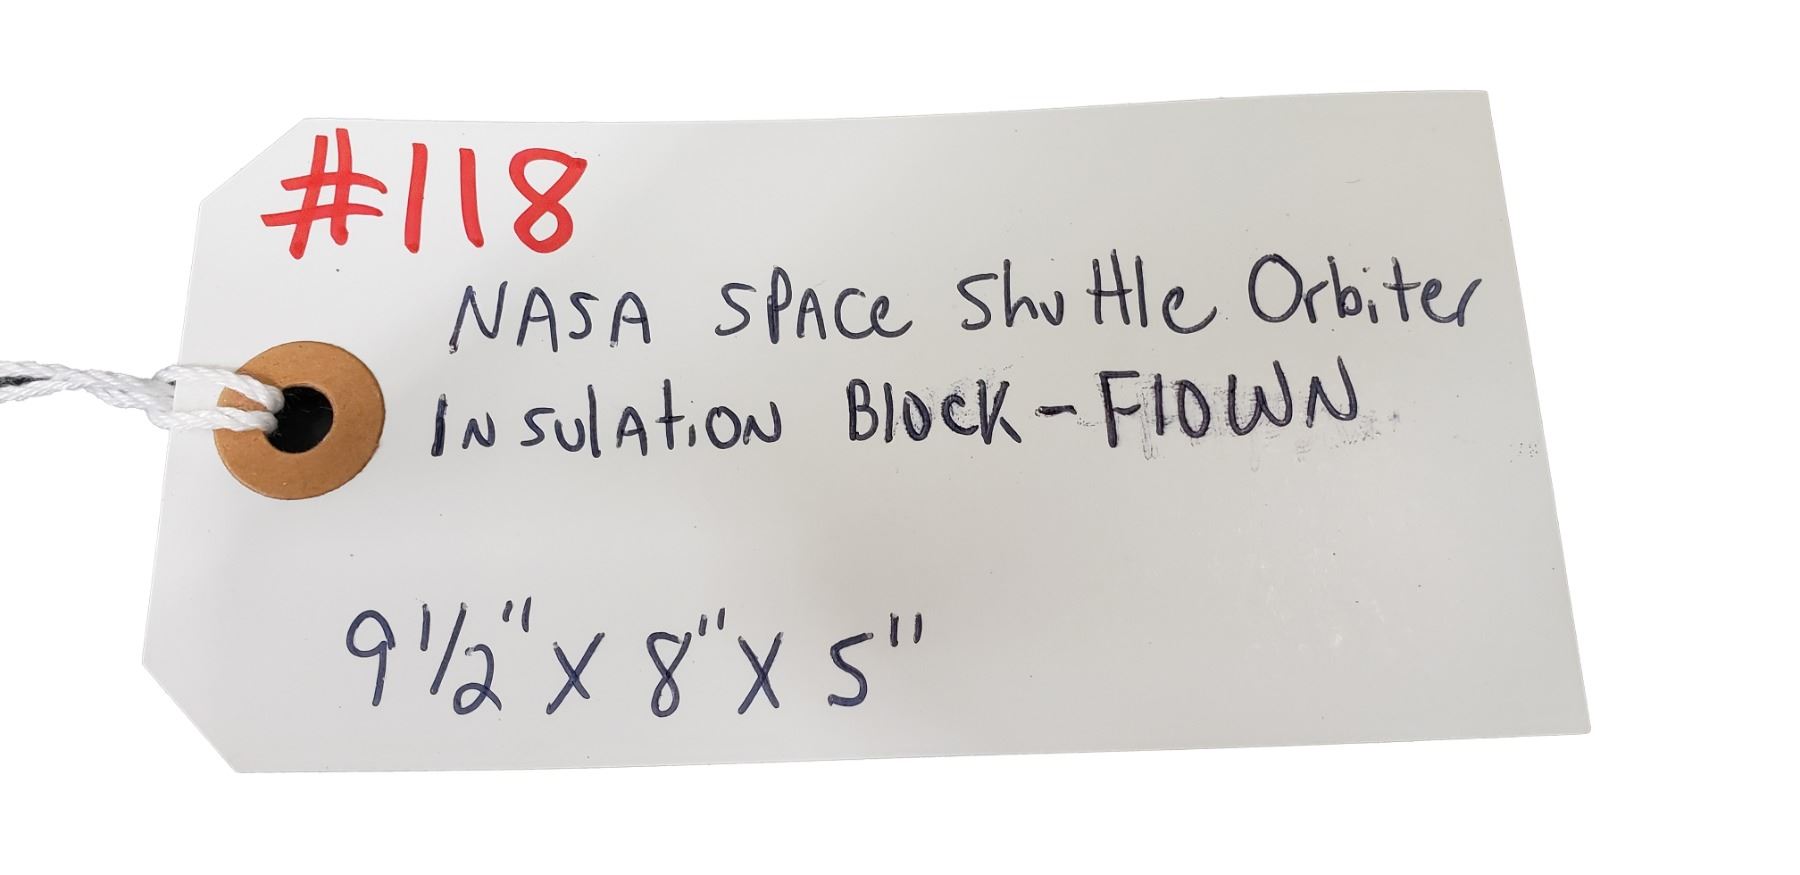 #118
NASA SPACe Shuttle Orbiter
INSulAtiON BlocK-FlOWN
9 1/2" X 8" X 5"